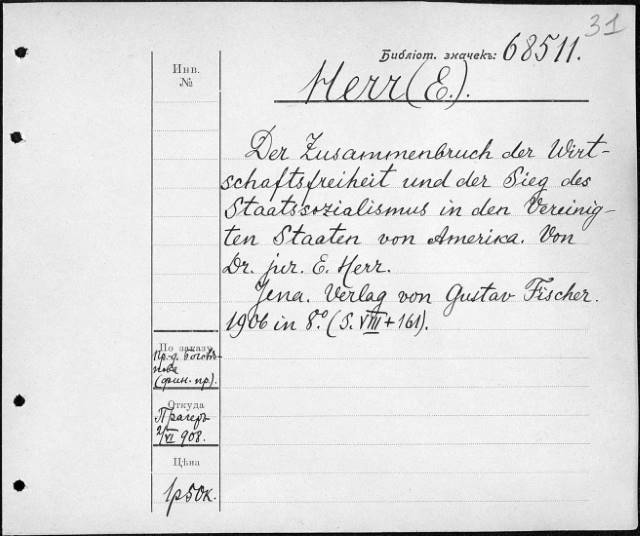 31
Библіот. значекъ: 68511.
Инв.
№
Herr (E.).
Der Zusammenbruch der Wirt-
schaftsfreiheit und der Sieg des
Staatssozialismus in den Vereinig-
ten Staaten von Amerika. Von
Dr. jur. E. Herr.
Jena. Verlag von Gustav Fischer.
1906 in 8.° (S. VIII + 161).
По заказу
(фин. пр).
Откуда
Прагеръ
2/VI 908.
Цѣна
1р50к.